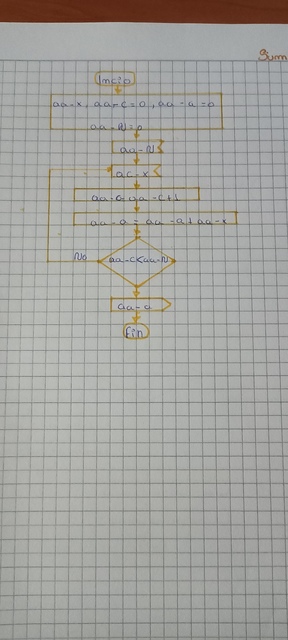 Sum
Inicio
aa-x, aa-c=0, aa-a=0
aa-N=0
aa-N
ac-x
aa-c=aa-c+1
aa-a=aa-a+aa-x
No
aa-c<aa-N
aa-a
Fin